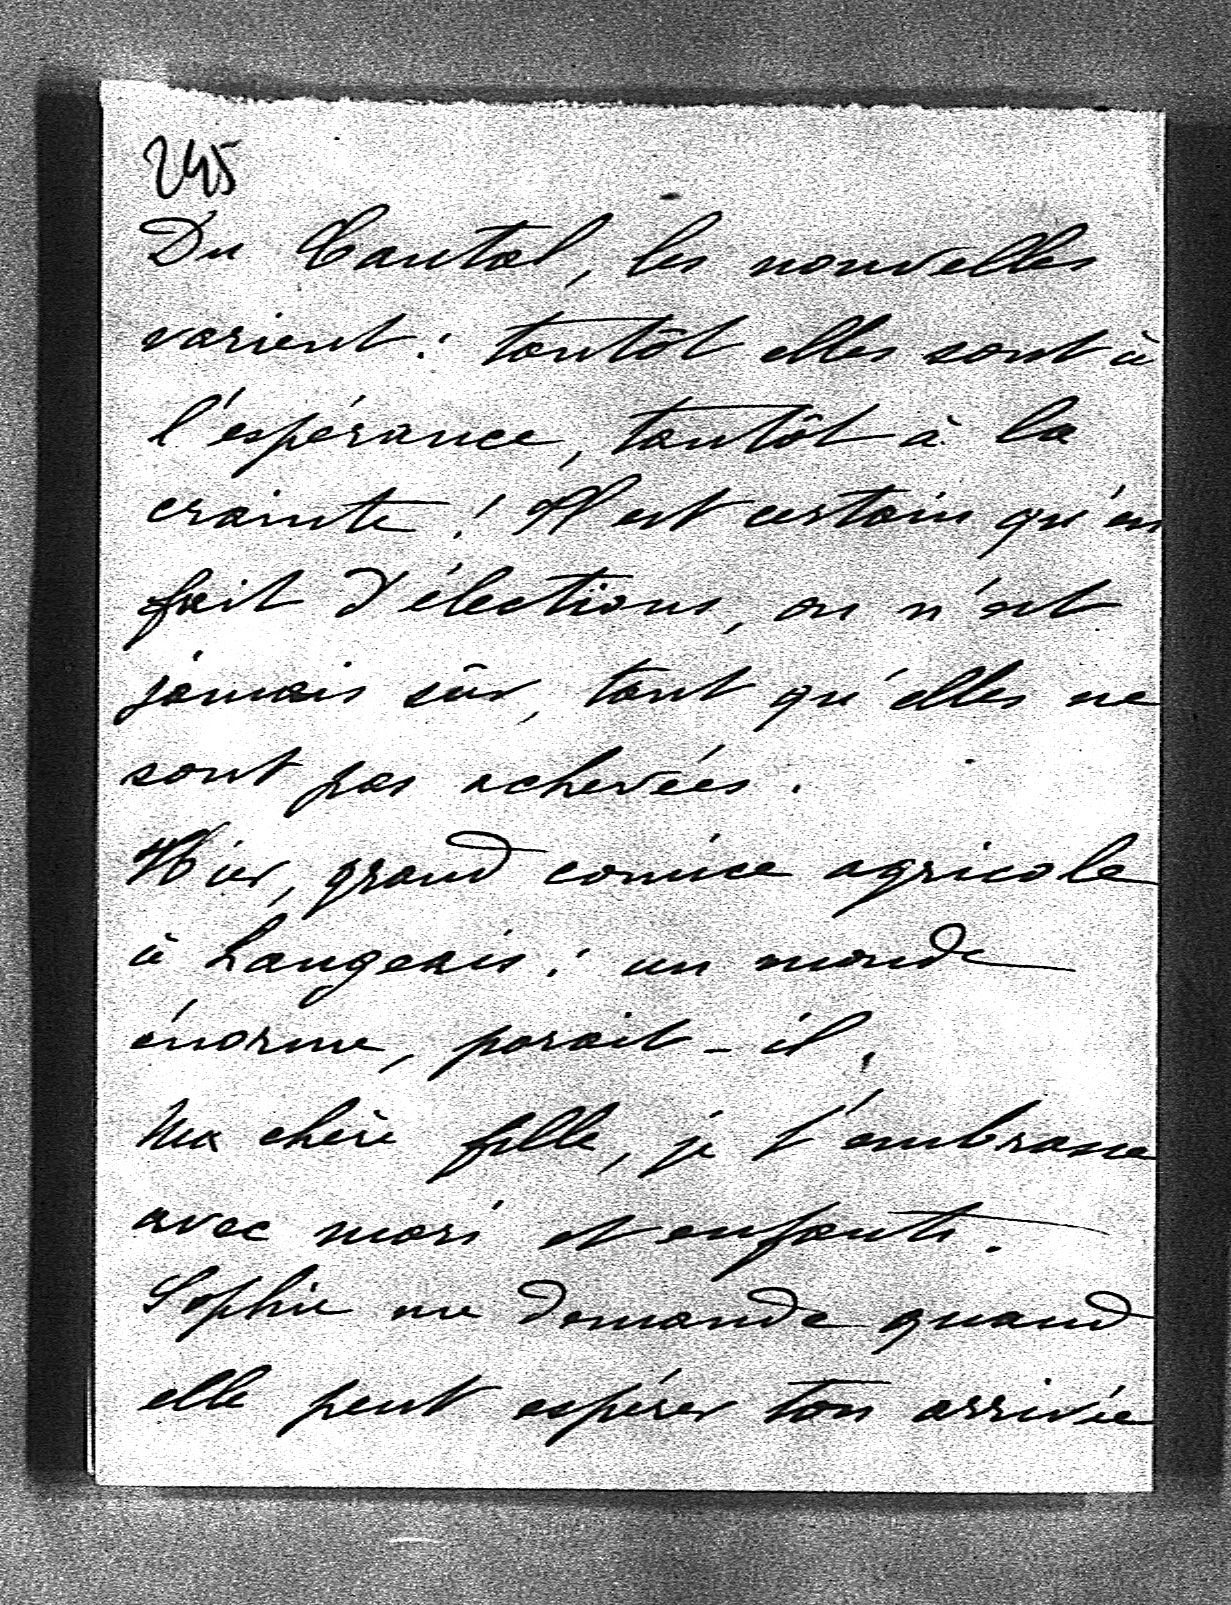 245
Du Cantal, les nouvelles
varient : tantôt elles sont à
l'espérance, tantôt à la
crainte ! Il est certain qu'en
fait d'élections, on n'est
jamais sûr, tant qu'elles ne
sont pas achevées.
Hier, grand comice agricole
à Langeais : un monde
énorme, parait-il.
Ma chère fille, je t'embrasse
avec mari et enfants.
Sophie me demande quand
elle peut espérer ton arrivée